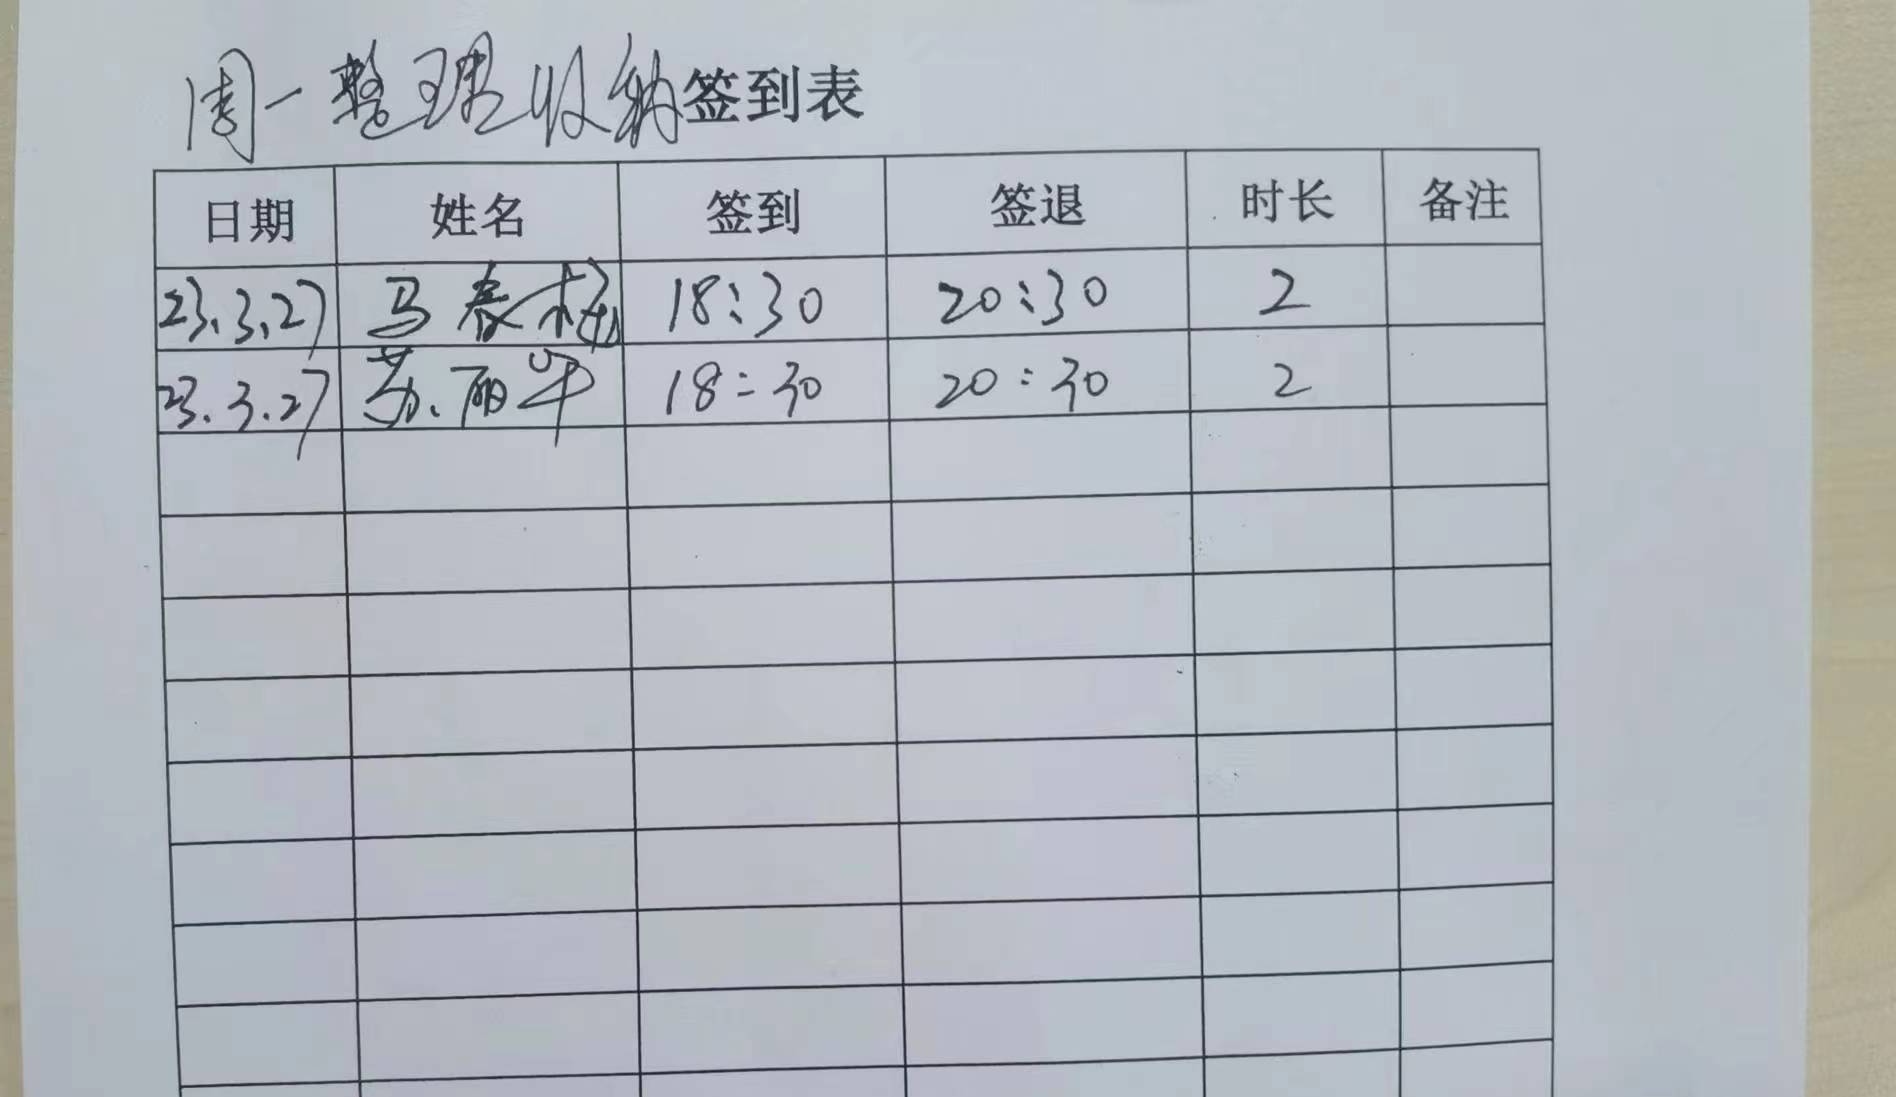 周一整理收纳签到表
日期 姓名 签到 签退 时长 备注
23.3.27 马春梅 18:30 20:30 2
23.3.27 苏丽华 18:30 20:30 2